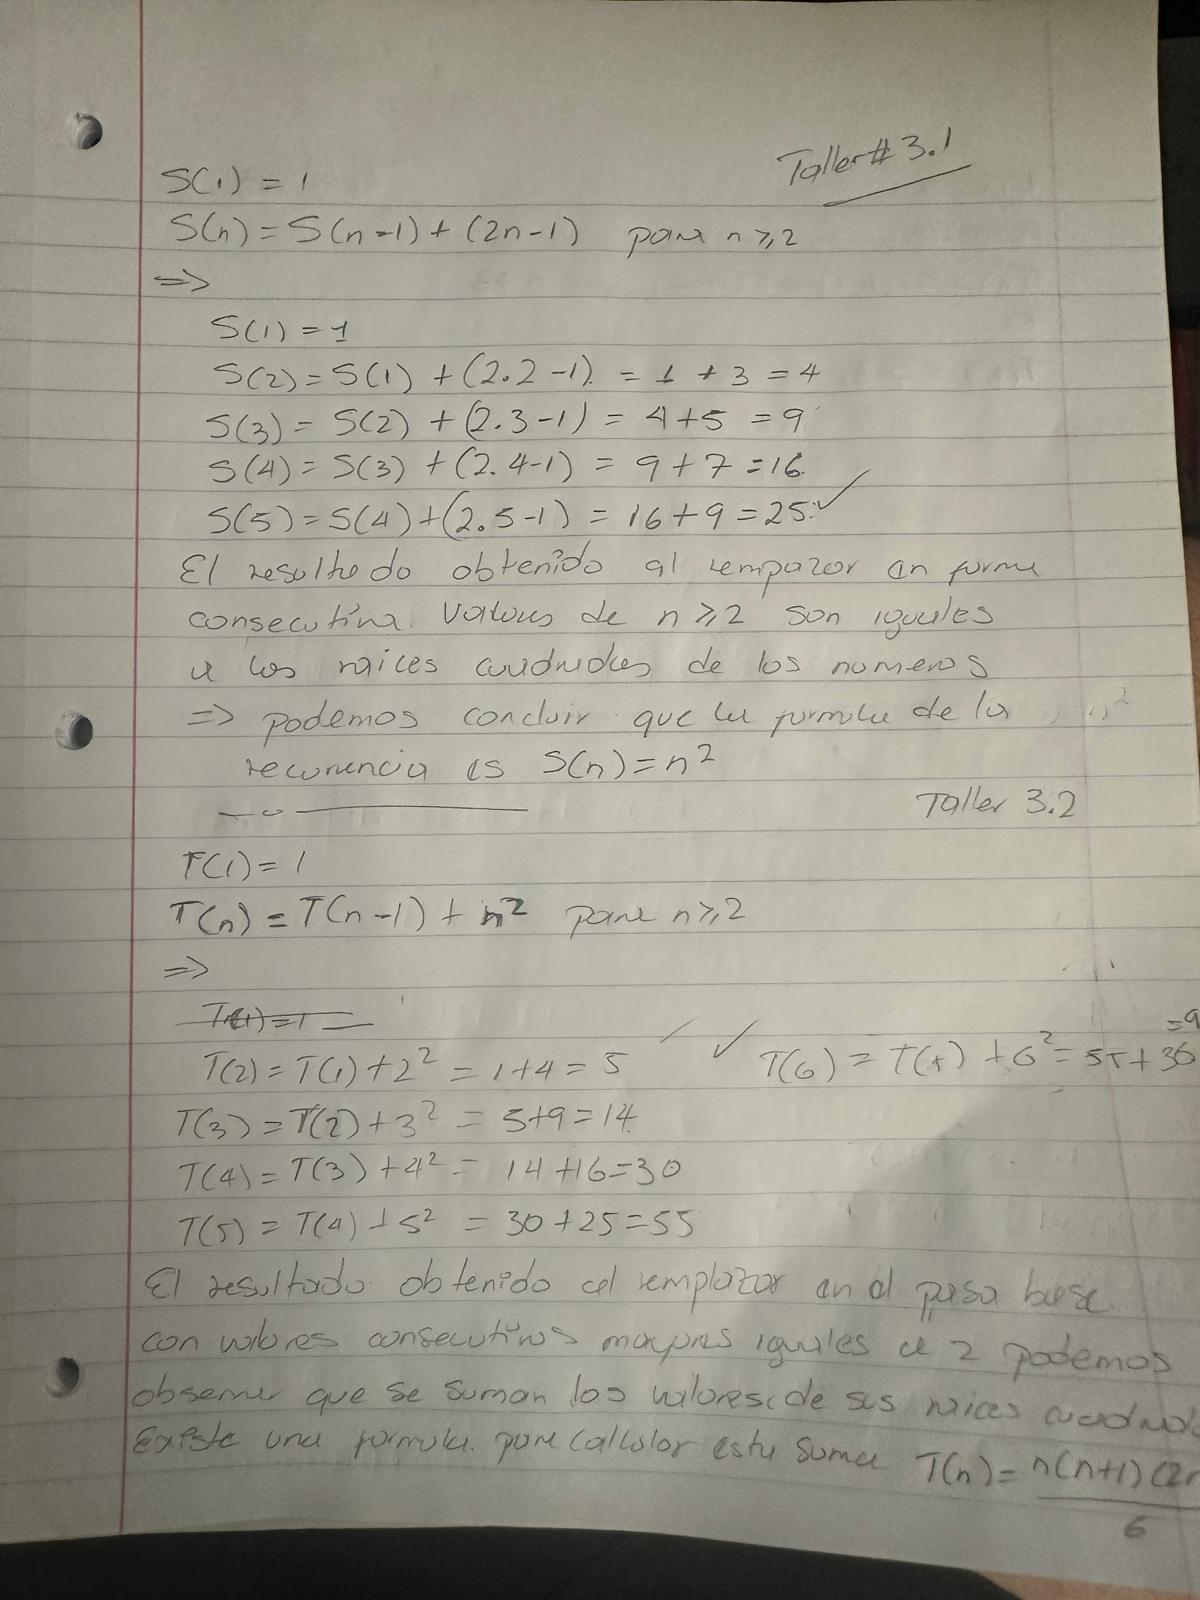 Taller # 3.1
S(1) = 1
S(n) = S(n-1) + (2n-1) para n ≥ 2
=>
S(1) = 1
S(2) = S(1) + (2.2-1) = 1 + 3 = 4
S(3) = S(2) + (2.3-1) = 4+5 = 9
S(4) = S(3) + (2.4-1) = 9+7 = 16
S(5) = S(4) + (2.5-1) = 16+9 = 25 ✓
El resultado obtenido al rempazar en forma
consecutiva valores de n ≥ 2 son iguales
a los raices cuadradas de los numeros
=> podemos concluir que la formula de la n²
recurrencia es S(n) = n²
Taller 3.2
T(1) = 1
T(n) = T(n-1) + n² para n ≥ 2
=>
T(1) = 1
T(2) = T(1) + 2² = 1+4 = 5 ✓ T(6) = T(5) + 6² = 55+36 =9
T(3) = T(2) + 3² = 5+9 = 14
T(4) = T(3) + 4² = 14+16 = 30
T(5) = T(4) + 5² = 30+25 = 55
El resultado obtenido al remplazar en el paso base
con valores consecutivos mayores iguales a 2 podemos
observar que se suman los valores de sus raices cuadrad
Existe una formula para calcular esta suma T(n) = n(n+1)(2n
6